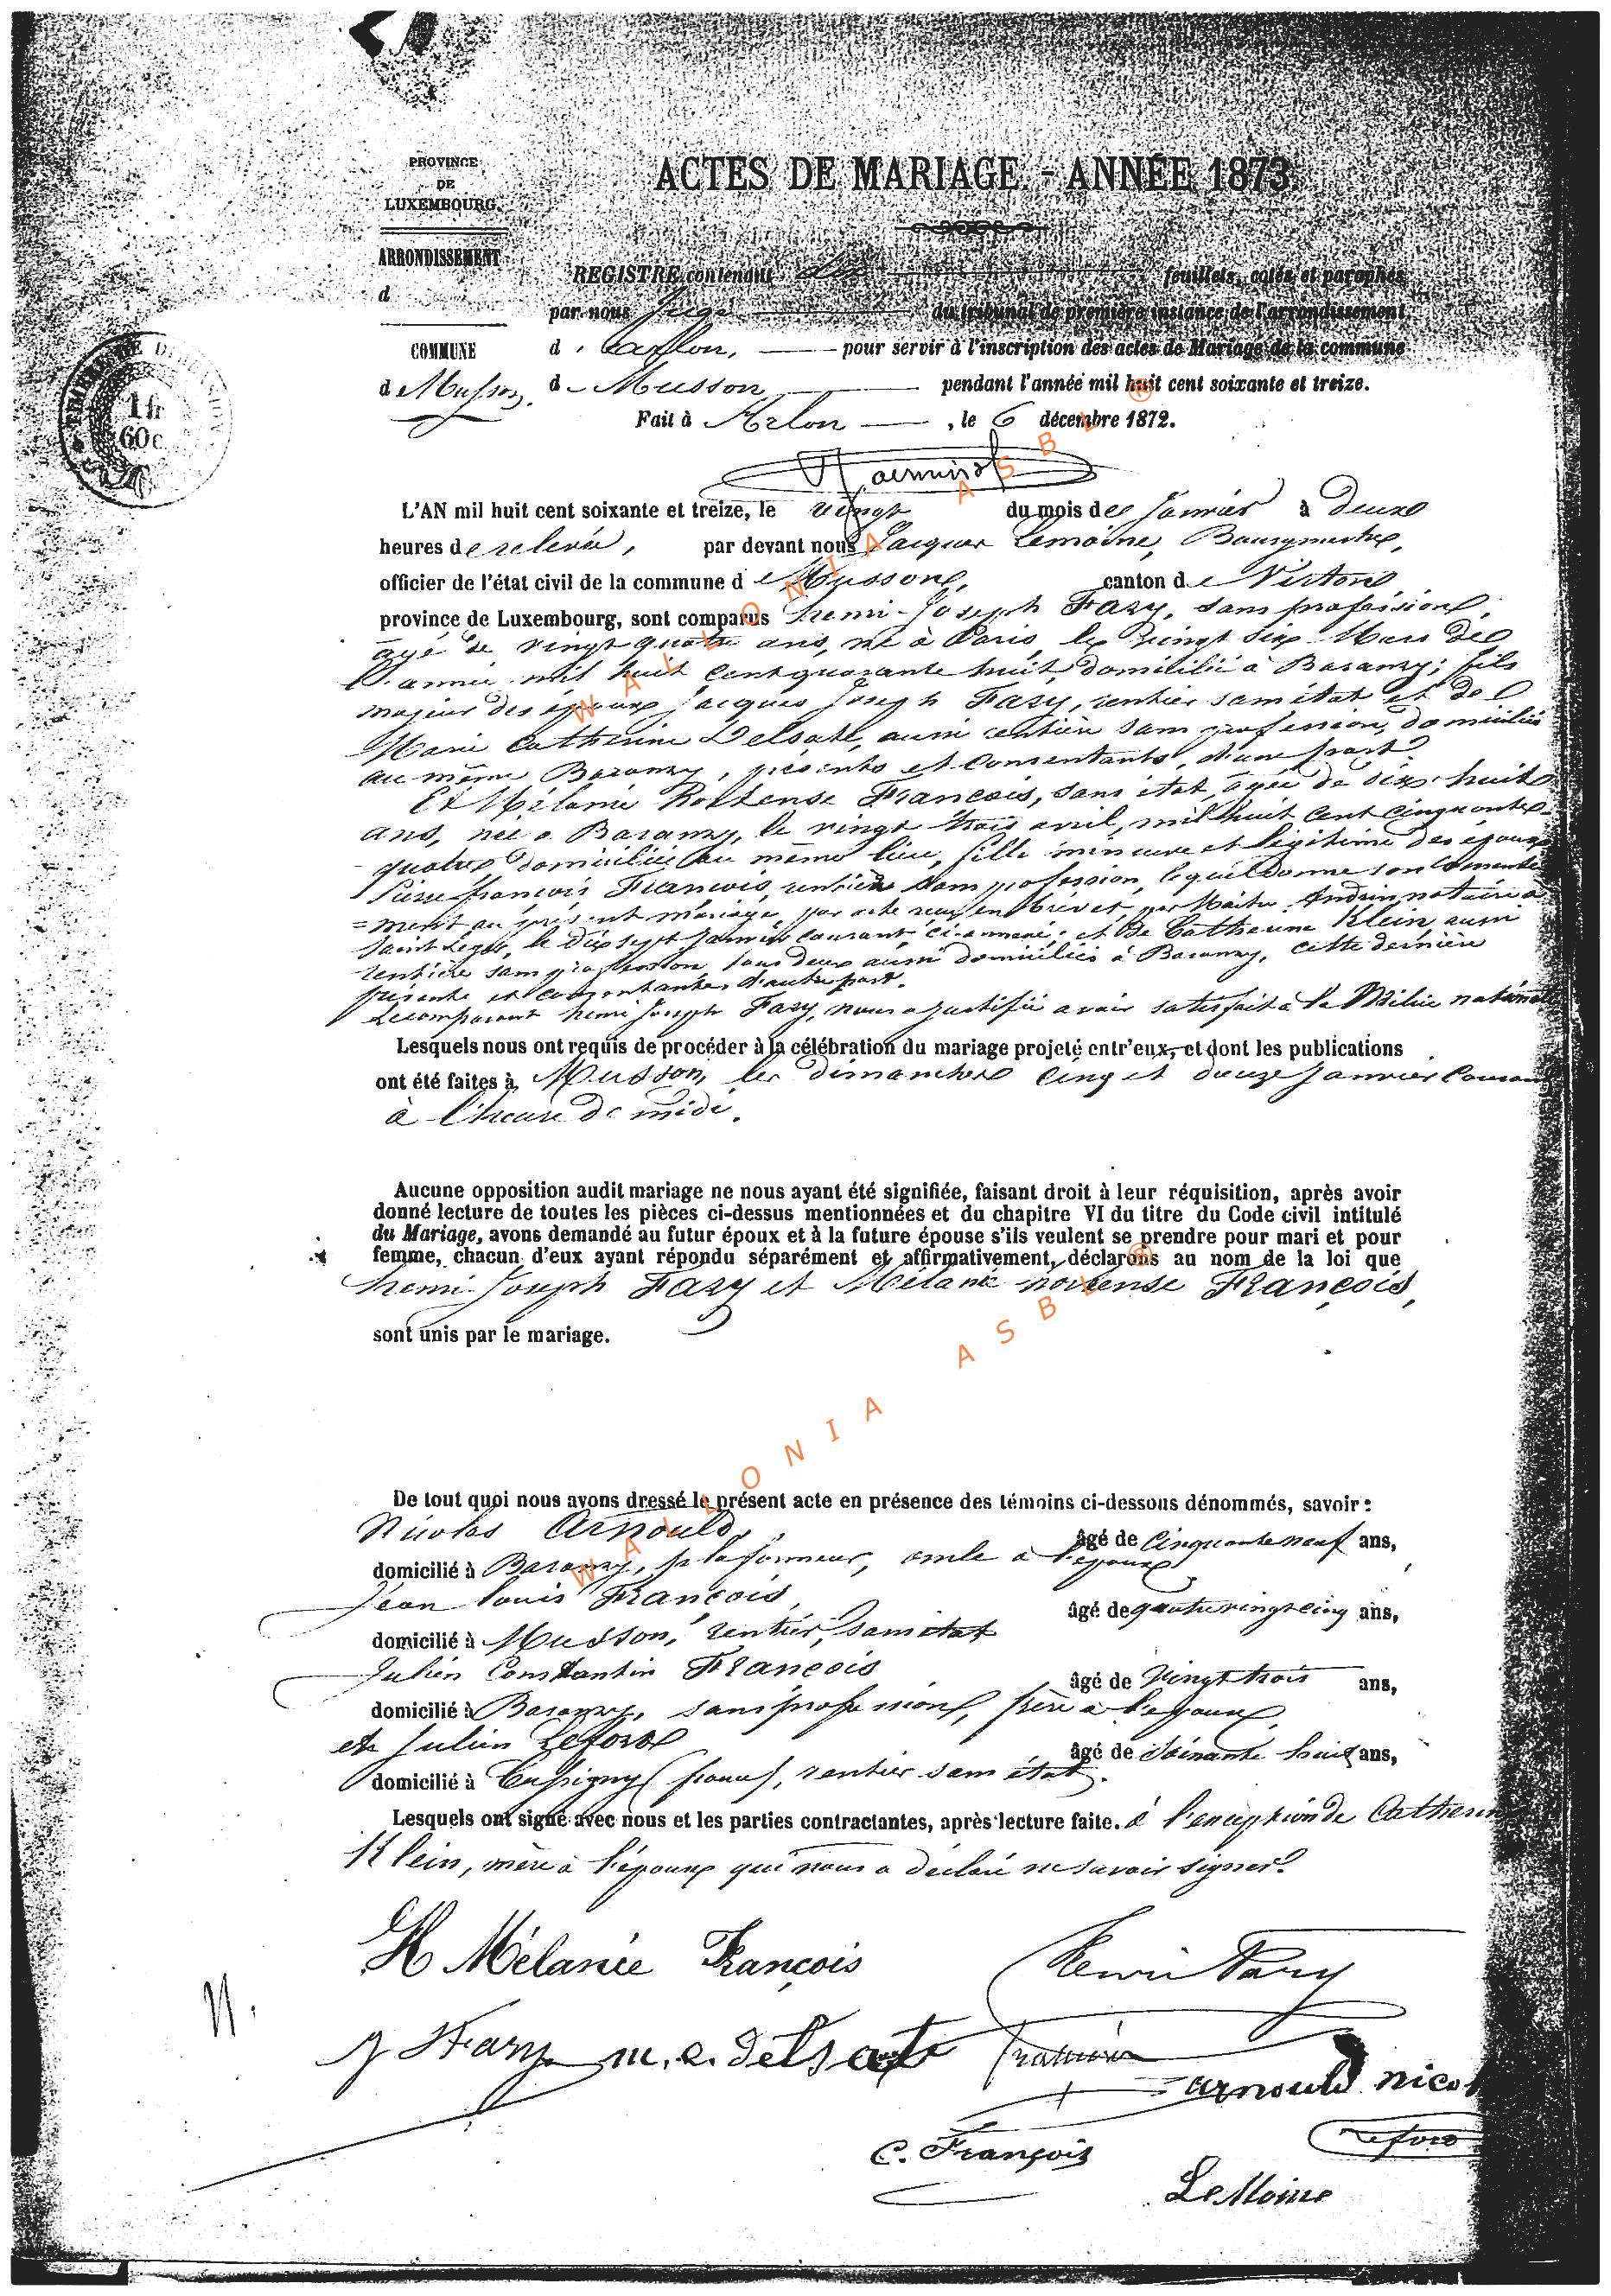 PROVINCE
DE
LUXEMBOURG.
ARRONDISSEMENT
d
COMMUNE
de Musson.
1 fr
60c
ACTES DE MARIAGE. - ANNÉE 1873.
REGISTRE contenant dix feuillets, cotés et paraphés
par nous Juge du tribunal de première instance de l'arrondissement
d'arlon, pour servir à l'inscription des actes de Mariage de la commune
de Musson pendant l'année mil huit cent soixante et treize.
Fait à Arlon, le 6 décembre 1872.
L'AN mil huit cent soixante et treize, le vingt du mois de Janvier à Deux
heures de relevée, par devant nous Jacques Lemoine, Bourgmestre,
officier de l'état civil de la commune de Musson, canton de Virton
province de Luxembourg, sont comparus henri-Joseph Fary, sans profession,
âgé de vingt quatre ans, né à Paris, le vingt six Mars de
l'année mil huit cent quarante huit, domicilié à Baranzy; fils
majeur des époux Jacques Joseph Fary, rentier sans état et de
Marie Catherine Delsate, aussi rentière sans profession, domiciliés
au même Baranzy, présents et consentants, d'une part
Et Mélanie Hortense François, sans état, âgée de dix-huit
ans, née à Baranzy, le vingt trois avril, mil huit cent cinquante
quatre domiciliée au même lieu, fille mineure et légitime des époux
Pierre françois François, rentier sans profession, lequel donne son consente
=ment au présent mariage, par acte reçu en brevet, par Maître Andrin notaire à
Saint Léger, le dix sept Janvier courant, ci-annexé; et de Catherine Klein, aussi
rentière sans profession, tous deux aussi domiciliés à Baranzy, cette dernière
présente et consentante, d'autre part.
Le comparant henri Joseph Fary, nous a justifié avoir satisfait à la Milice nationale
Lesquels nous ont requis de procéder à la célébration du mariage projeté entr'eux, et dont les publications
ont été faites à Musson, les dimanches cinq et douze Janvier Courant
à l'heure de midi.
Aucune opposition audit mariage ne nous ayant été signifiée, faisant droit à leur réquisition, après avoir
donné lecture de toutes les pièces ci-dessus mentionnées et du chapitre VI du titre du Code civil intitulé
du Mariage, avons demandé au futur époux et à la future épouse s'ils veulent se prendre pour mari et pour
femme, chacun d'eux ayant répondu séparément et affirmativement, déclarons au nom de la loi que
henri-Joseph Fary et Mélanie hortense François,
sont unis par le mariage.
De tout quoi nous avons dressé le présent acte en présence des témoins ci-dessous dénommés, savoir :
Nicolas Arnould, âgé de Cinquante neuf ans,
domicilié à Baranzy, plafonneur, oncle à l'époux
Jean Louis François, âgé de quatre vingt cinq ans,
domicilié à Musson, rentier, sans état
Julien Constantin François âgé de Vingt trois ans,
domicilié à Baranzy, sans profession, frère à l'épouse,
et Julien Leford âgé de Soixante huit ans,
domicilié à Cussigny (france), rentier sans état.
Lesquels ont signé avec nous et les parties contractantes, après lecture faite. à l'exception de Catherine
Klein, mère à l'épouse qui nous a déclaré ne savoir signer.
H Mélanie François
Henri Fary
N.
J J Fary m. c. delsate
arnould nicol
C. François
Leford
LeMoine
WALLONIA ASBL ®
WALLONIA ASBL ®